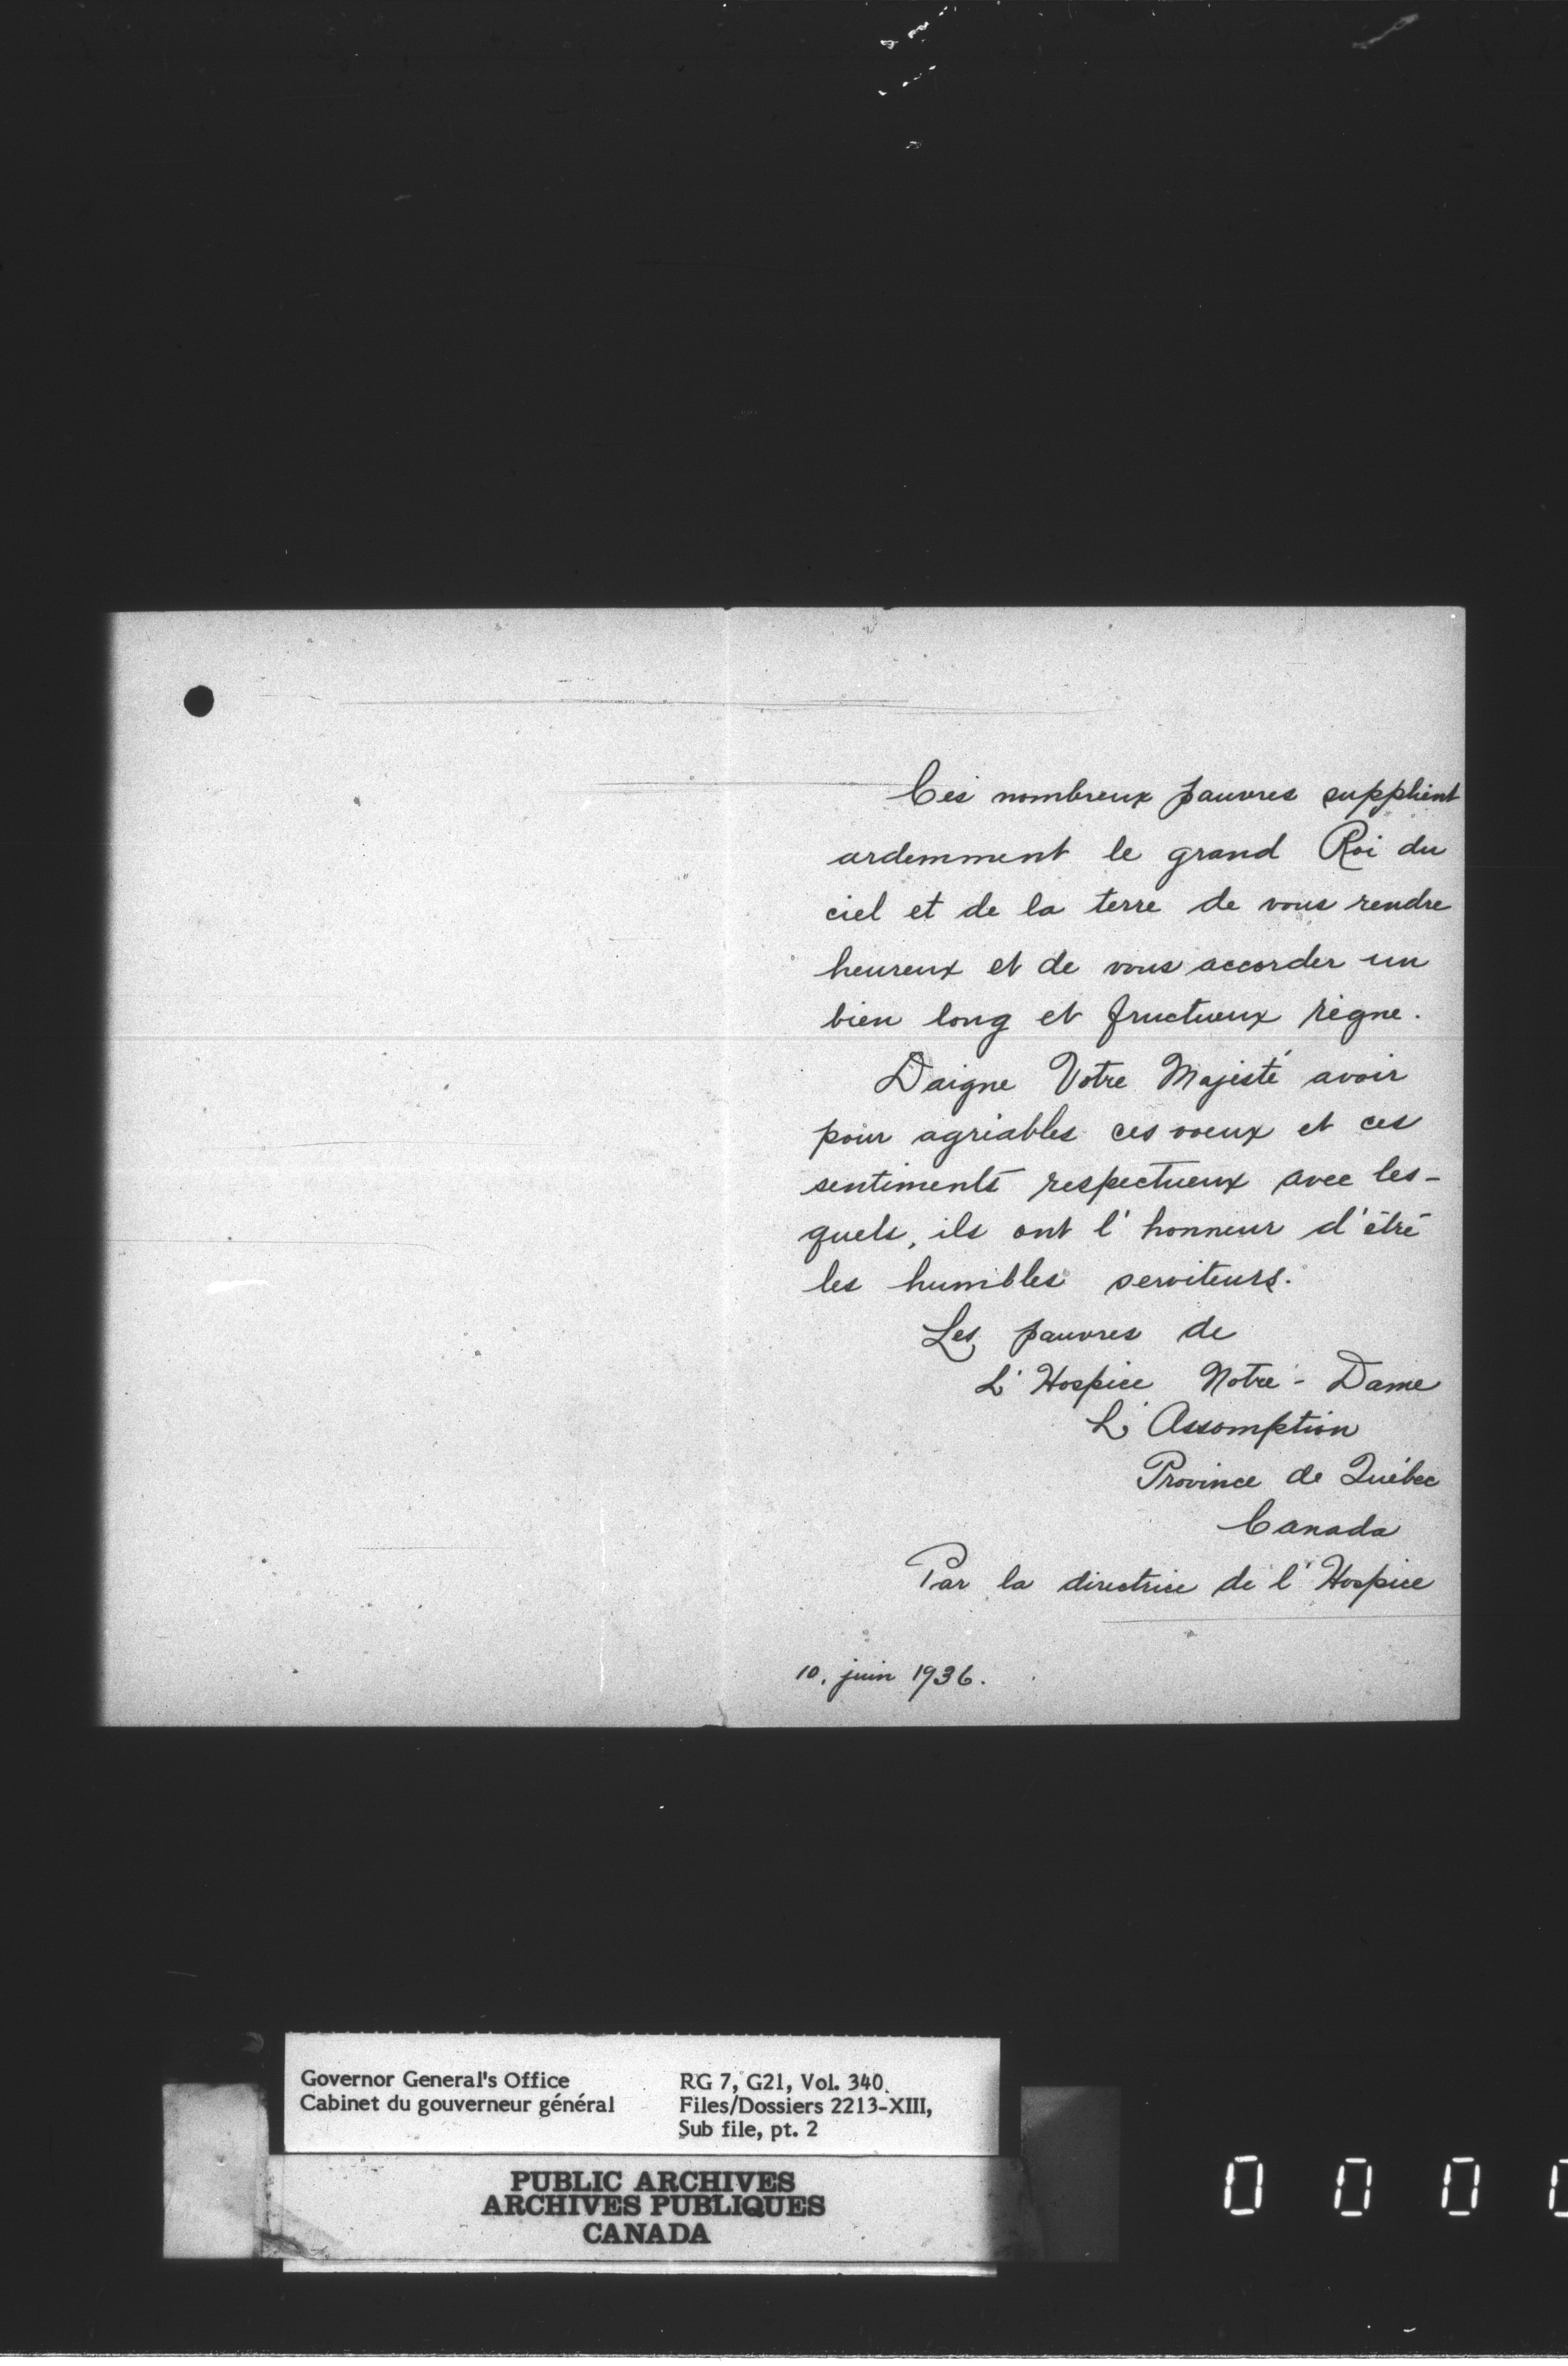 Ces nombreux pauvres supplient
ardemment le grand Roi du
ciel et de la terre de vous rendre
heureux et de vous accorder un
bien long et fructueux règne.
Daigne Votre Majesté avoir
pour agréables ces voeux et ces
sentiments respectueux avec les-
quels, ils ont l'honneur d'être
les humbles serviteurs.
Les pauvres de
L'Hospice Notre-Dame
L'Assomption
Province de Québec
Canada
Par la directrice de l'Hospice
10, juin 1936.
Governor General's Office RG 7, G21, Vol. 340.
Cabinet du gouverneur général Files/Dossiers 2213-XIII,
Sub file, pt. 2
PUBLIC ARCHIVES
ARCHIVES PUBLIQUES
CANADA
0 0 0